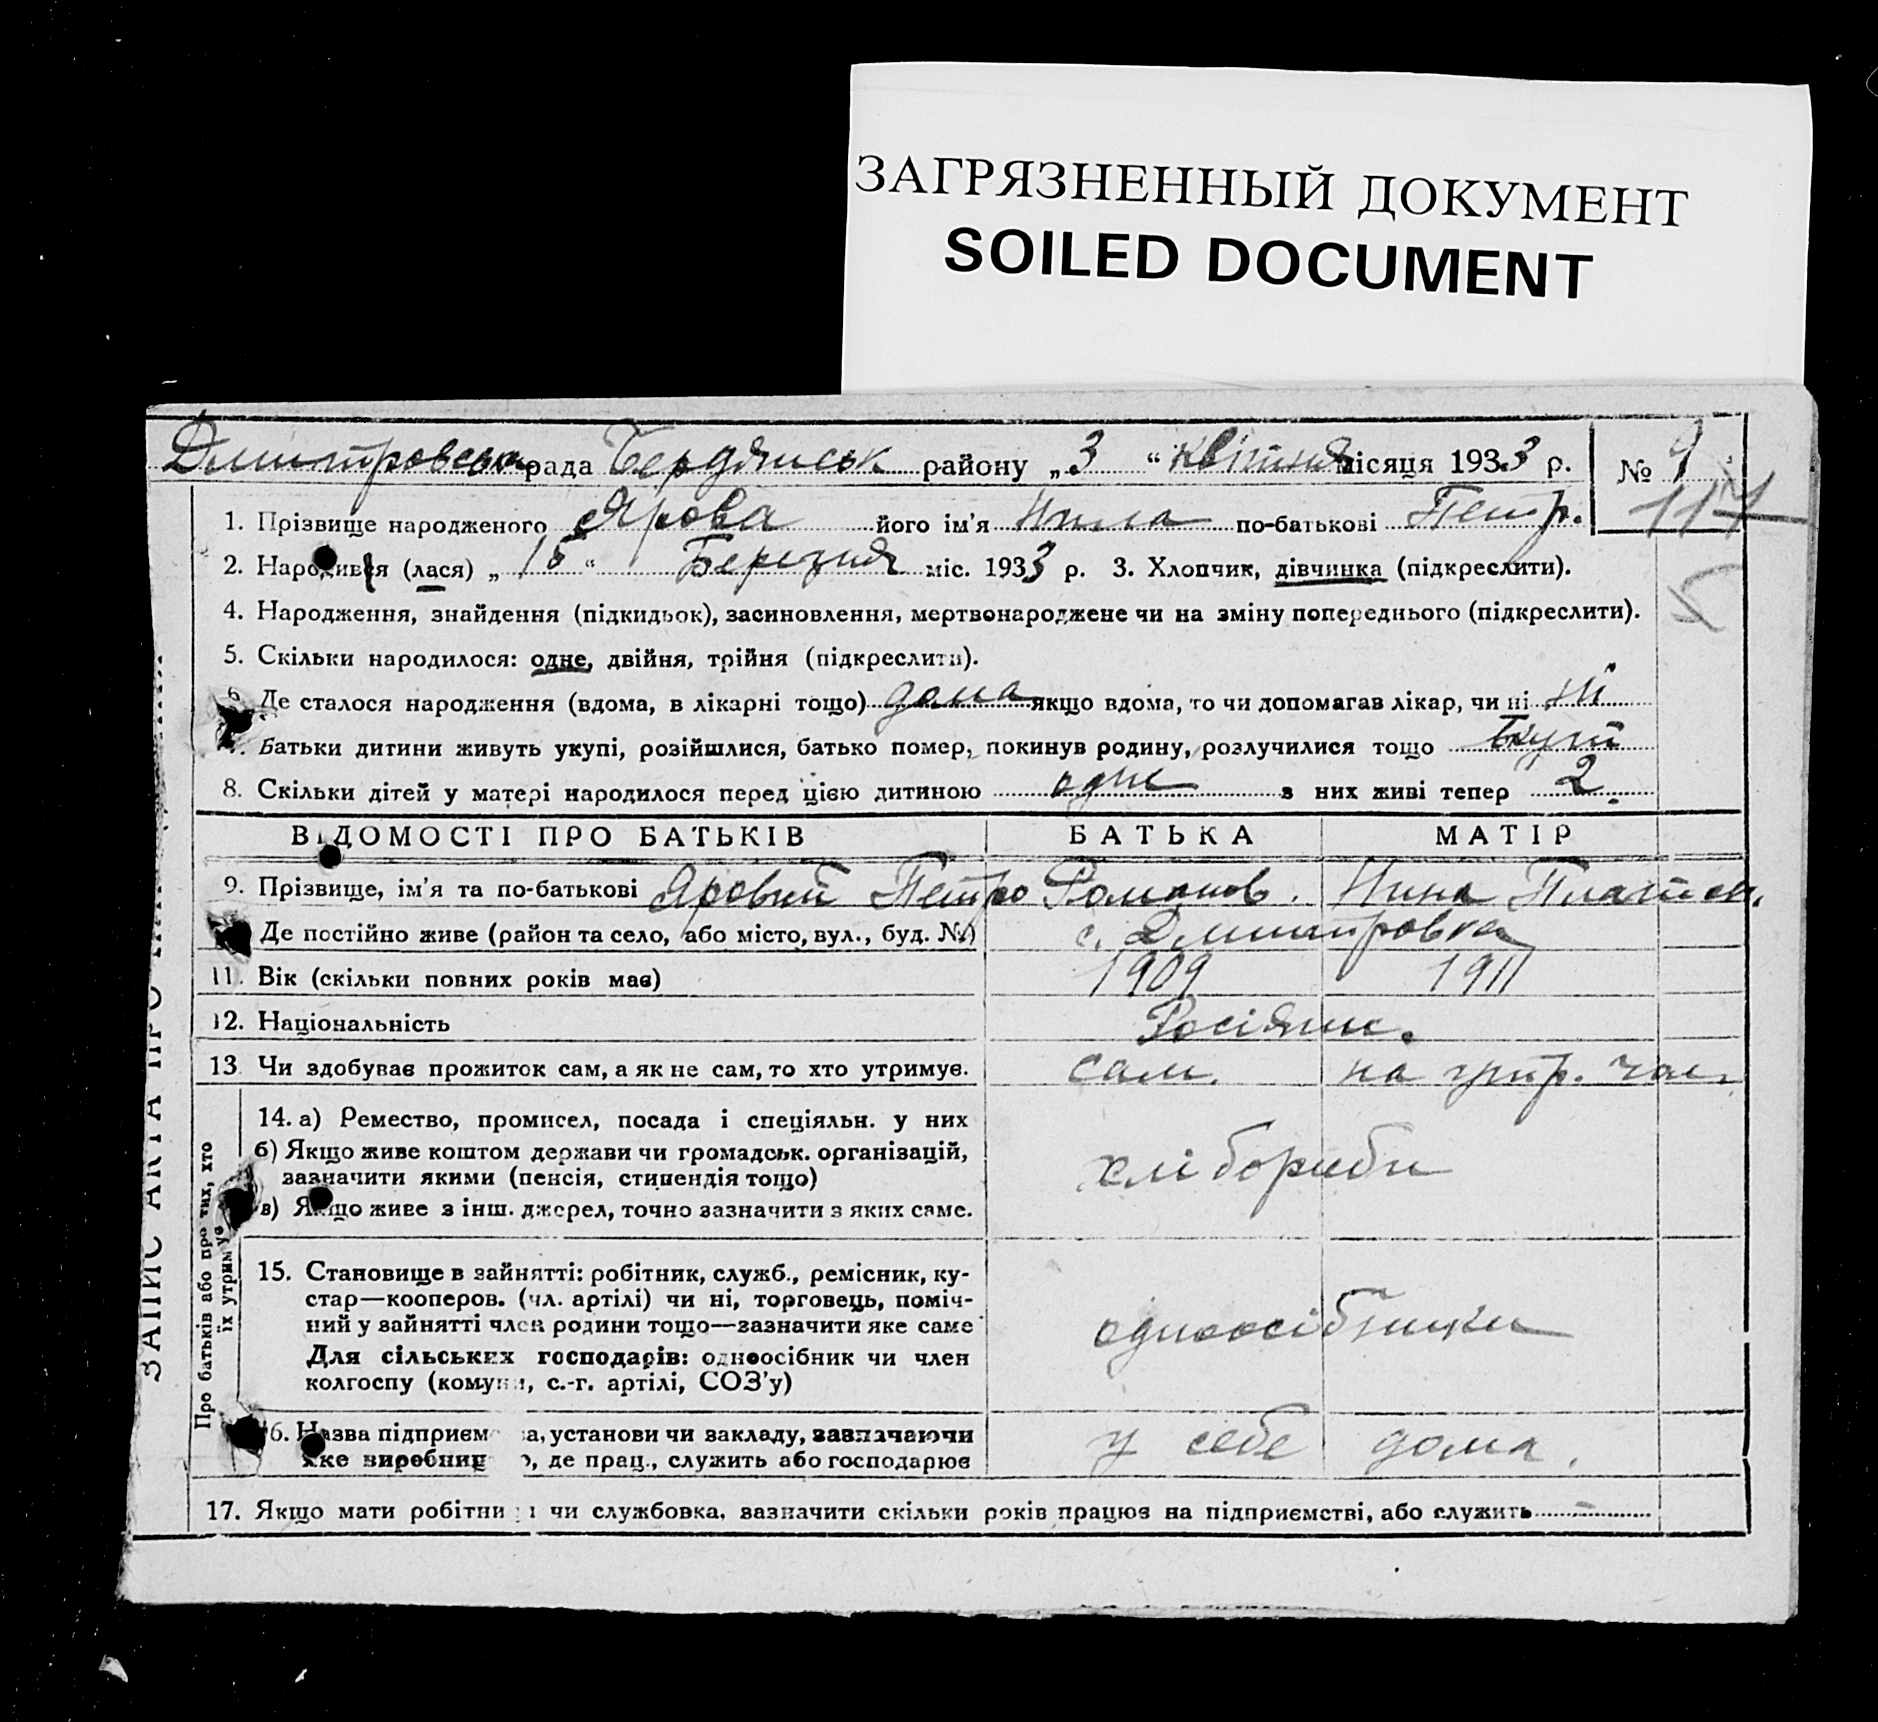 ЗАГРЯЗНЕННЫЙ ДОКУМЕНТ
SOILED DOCUMENT
Дмитровська рада Бердянськ району „3“ квітня місяця 1933 р. № 9
117
1. Прізвище народженого Ярова його ім’я Нина по-батькові Петр.
2. Народився (лася) „15“ Березня міс. 1933 р. 3. Хлопчик, дівчинка (підкреслити).
4. Народження, знайдення (підкидьок), засиновлення, мертвонароджене чи на зміну попереднього (підкреслити).
5. Скільки народилося: одне, двійня, трійня (підкреслити).
6. Де сталося народження (вдома, в лікарні тощо) дома якщо вдома, то чи допомагав лікар, чи ні ні
7. Батьки дитини живуть укупі, розійшлися, батько помер, покинув родину, розлучилися тощо вкупі
8. Скільки дітей у матері народилося перед цією дитиною одне з них живі тепер 2.
ВІДОМОСТІ ПРО БАТЬКІВ БАТЬКА МАТІР
9. Прізвище, ім’я та по-батькові Яровий Петро Романов. Нина Платон.
Де постійно живе (район та село, або місто, вул., буд. №) с. Дмитровка
11. Вік (скільки повних років має) 1909 1911
12. Національність Росіяни.
13 Чи здобуває прожиток сам, а як не сам, то хто утримує. сам. на утр. чол.
14. а) Ремество, промисел, посада і спеціяльн. у них
б) Якщо живе коштом держави чи громадськ. організацій,
зазначити якими (пенсія, стипендія тощо) хлібороби
в) Якщо живе з інш. джерел, точно зазначити з яких саме.
15. Становище в зайнятті: робітник, служб., ремісник, ку-
стар—кооперов. (чл. артілі) чи ні, торговець, поміч-
ний у зайнятті член родини тощо—зазначити яке саме
одноосібники
Для сільських господарів: одноосібник чи член
колгоспу (комуни, с.-г. артілі, СОЗ’у)
16. Назва підприєм ва, установи чи закладу, зазначаючи
яке виробниц о, де прац., служить або господарює у себе дома.
17. Якщо мати робітни ця чи службовка, зазначити скільки років працює на підприємстві, або служить –
ЗАПИС АКТА ПРО
Про батьків або про тих, хто
їх утримує